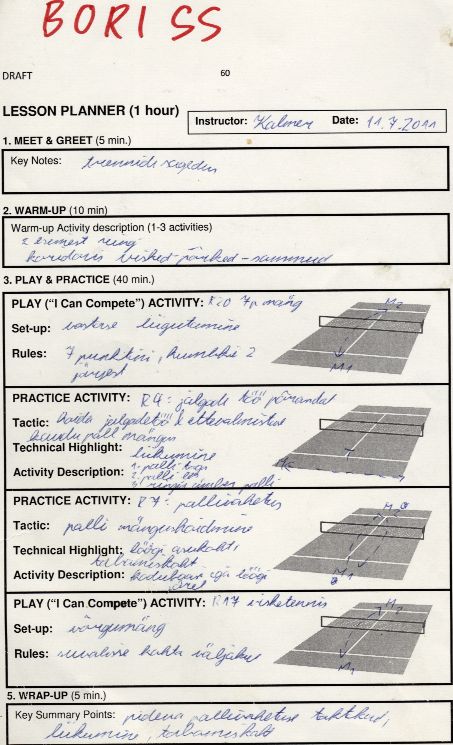 BORISS
DRAFT
60
LESSON PLANNER (1 hour)
Instructor: Kalmer Date: 11.7.2011
1. MEET & GREET (5 min.)
Key Notes: trennide
2. WARM-UP (10 min)
Warm-up Activity description (1-3 activities)
ring
visked - põrked - sammud
3. PLAY & PRACTICE (40 min.)
PLAY ("I Can Compete") ACTIVITY: 7p mäng
M2
Set-up: vastase liigutamine
Rules: 7 punktini, 2
järjest
M1
PRACTICE ACTIVITY: R4: jalgade töö põrandal
Tactic: jalgadetöö ettevalmistus
pall mängus
Technical Highlight: liikumine
Activity Description: 1. palli taga
2. palli
3. ringis ümber palli
PRACTICE ACTIVITY: R7: pallivahetus
M2
Tactic: palli mängushoidmine
Technical Highlight: löögi asukoht,
tabamuskoht
Activity Description: iga löögi
järel
M1
PLAY ("I Can Compete") ACTIVITY: R17 visketennis
M2
Set-up: võrgumäng
Rules: kahte väljakut
M1
5. WRAP-UP (5 min.)
Key Summary Points: pideva pallivahetuse taktikad,
liikumine, tabamuskoht